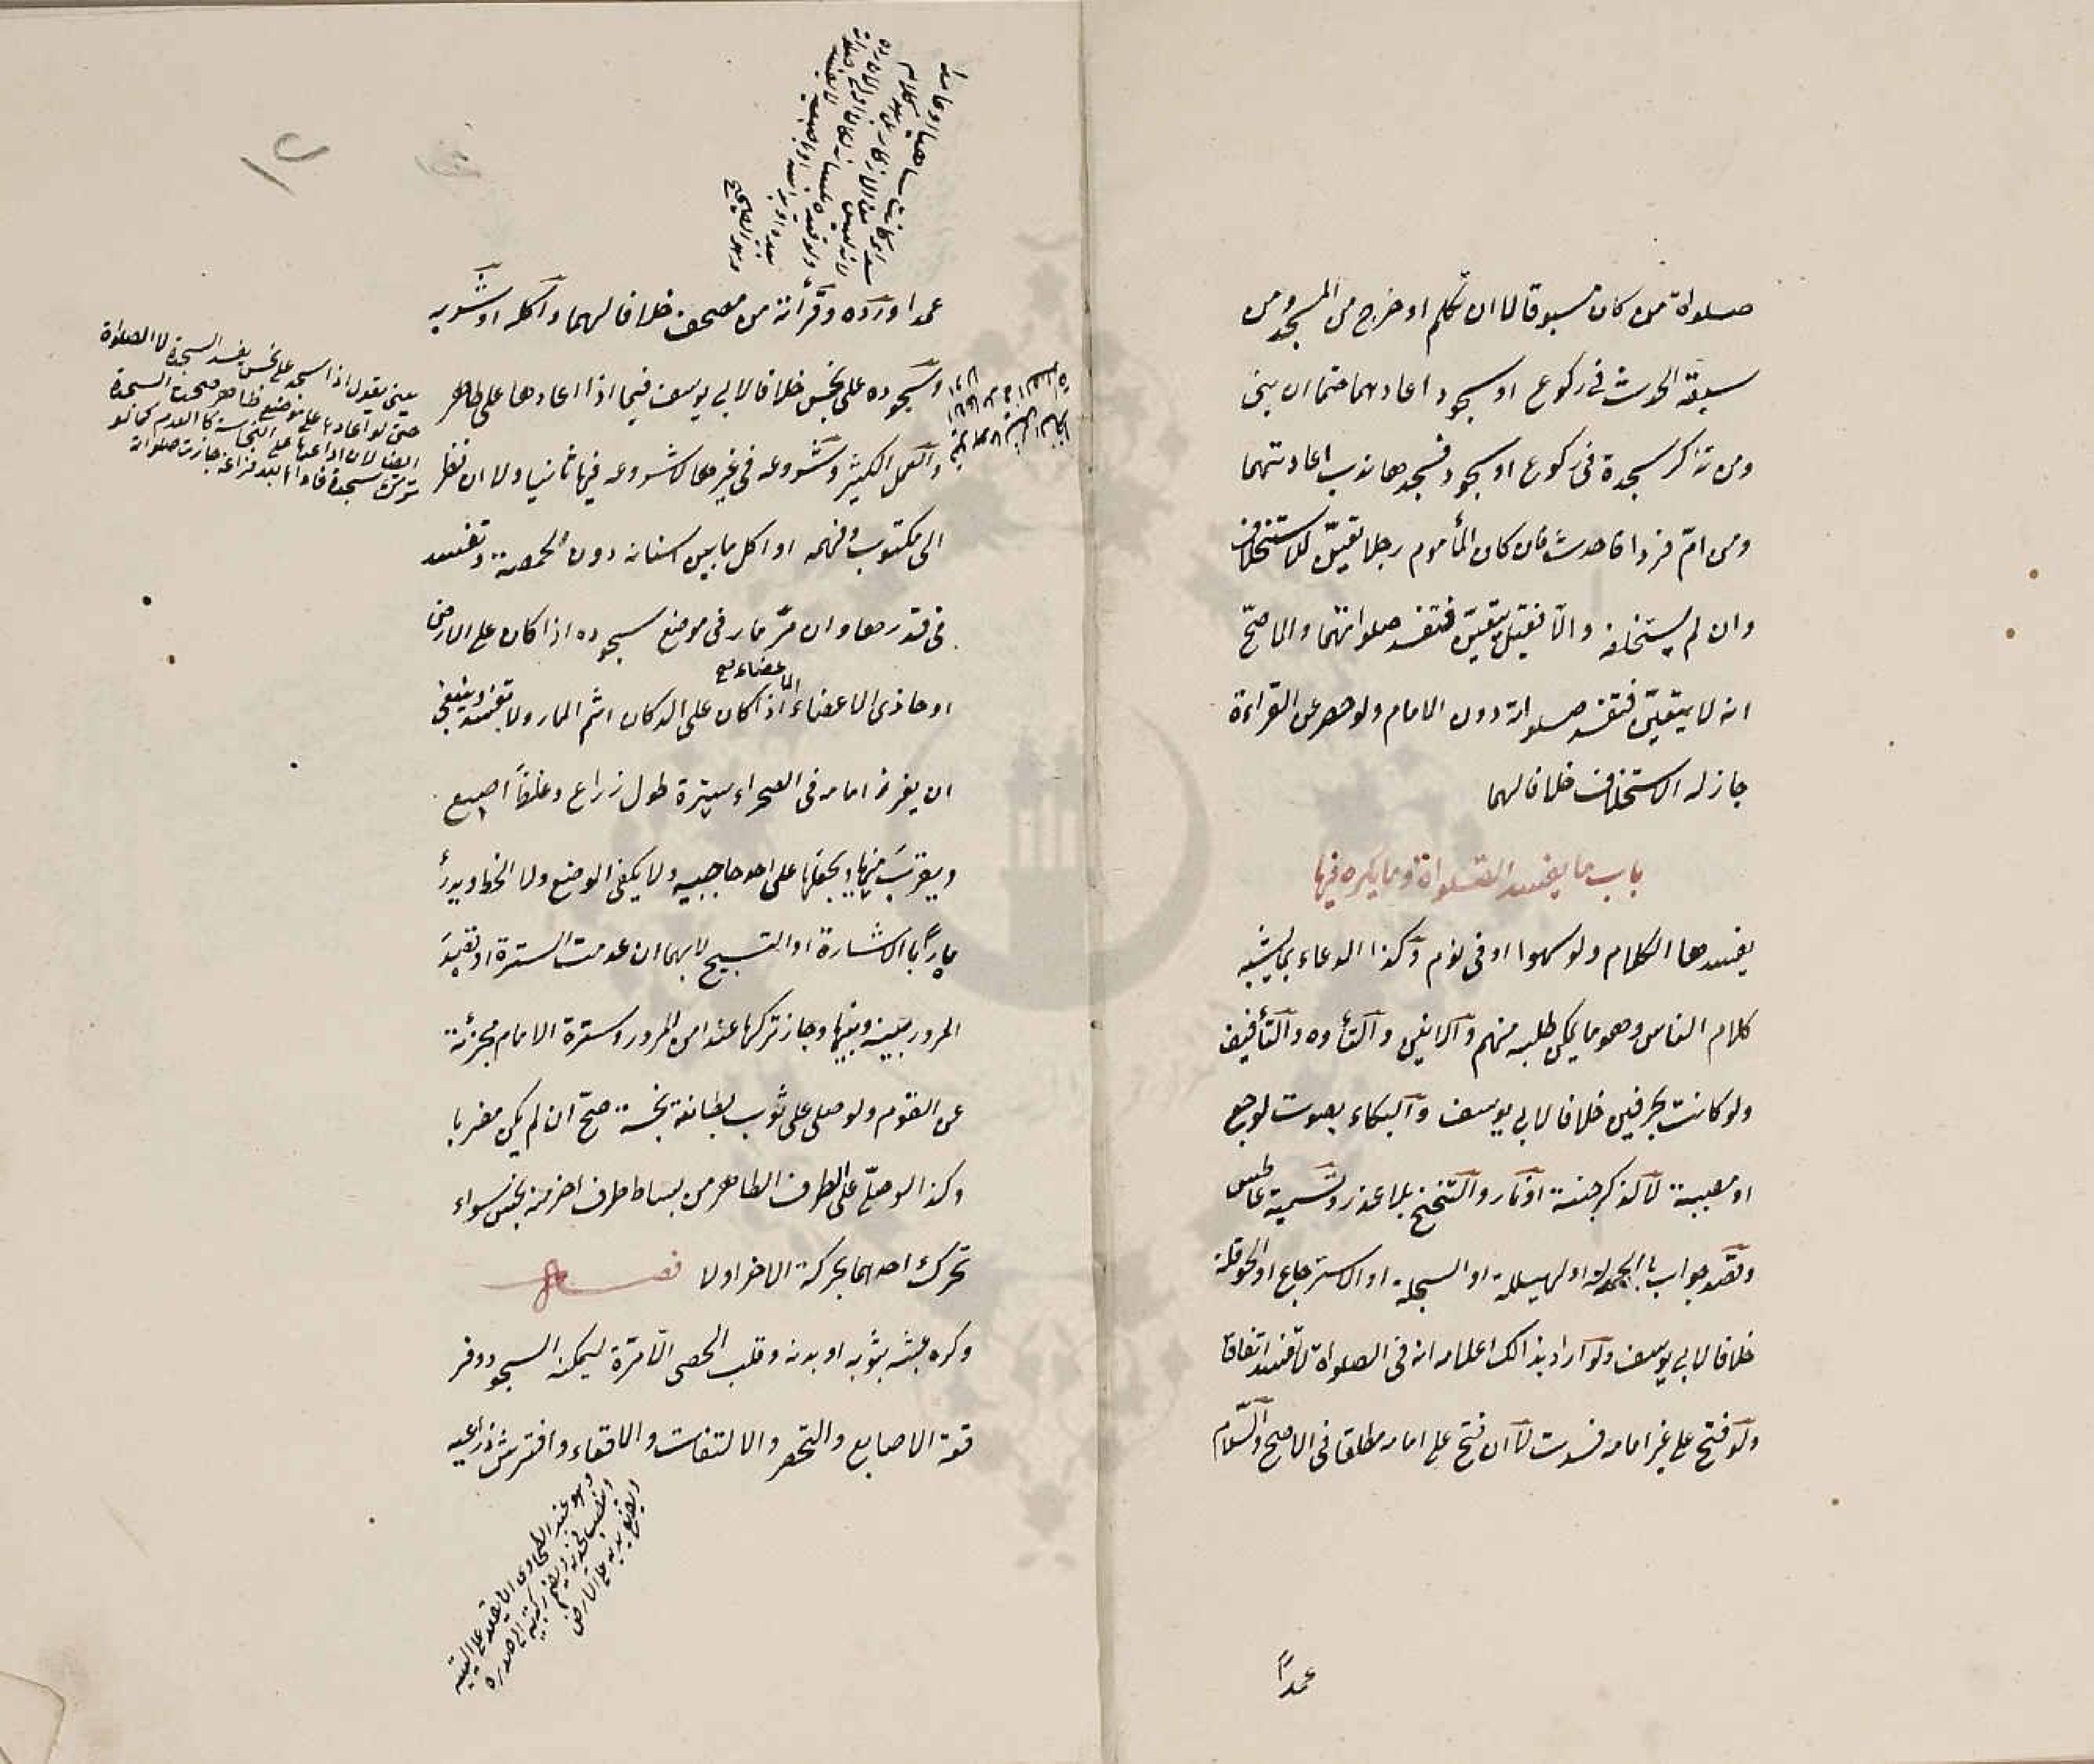 صلواة من كان مسبوقا لا ان تكلم او خرج من المسجد ومن
سبقه الحدث في ركوع او سجود اعادهما حتما ان بنى
ومن تذاكر سجدة في ركوع او سجود فسجدها ندب اعادتهما
ومن امّ فردا فاحدث فان كان المأموم رجلا تعيّن للاستخلاف
وان لم يستخلفه والا فقيل يتعيّن فتفسد صلواتهما والاصحّ
انه لا يتعيّن فتفسد صلواته دون الامام ولو حصر عن القراءة
جاز له الاستخلاف خلافا لهما
باب ما يفسد الصلواة وما يكره فيها
يفسدها الكلام ولو سهوا او في نوم وكذا الدعاء بما يشبه
كلام الناس وهو ما يمكن طلبه منهم والانين والتأوه والتأفيف
ولو كانت بحرفين خلافا لابي يوسف والبكاء بصوت لوجع
او مصيبة لا لذكر جنة او نار والتنحنح بلا عذر وتشميت عاطس
وقصد جواب بالحمدلة او الهيللة او السبحلة او الاسترجاع او الحوقلة
خلافا لابي يوسف ولو اراد بذالك اعلامه انه في الصلواة لا تفسد اتفاقا
ولو فتح على غير امامه فسدت لا ان فتح على امامه مطلقا في الاصح والسّلام
عمداً
١٢
عمدا ورده وقرأته من مصحف خلافا لهما واكله او شربه
وسجوده على نجس خلافا لابي يوسف فيما اذا اعادها على طاهر
والعمل الكثير وشروعه في غيرها لا شروعه فيها ثانيا ولا ان نظر
الى مكتوب وفهمه او اكل ما بين اسنانه دون الحمصة وتفسد
في قدرها وان مرّ مار في موضع سجوده اذا كان على الارض
او حاذى الاعضاء الاعضاء صح اذا كان على الدكان اثم المار ولا تفسد وينبغي
ان يغرز امامه في الصحراء سترة طول ذراع وغلظاً اصبع
ويقرب منها ويجعلها على احد حاجبيه ولا يكفي الوضع ولا الخط ويدرأ
ماراً بالاشارة او التسبيح لا بهما ان عدمت السترة او قصد
المرور بينه وبينها وجاز تركها عند امن المرور وسترة الامام مجزئة
عن القوم ولو صلى على ثوب بطانته نجسة صحّ ان لم يكن مضربا
وكذا لو صلّى على الطرف الطاهر من بساط طرف اخر منه نجس سواء
تحرك احدهما بحركة الاخر اولا فصل
وكره عبثه بثوبه او بدنه وقلب الحصى الا مرّة ليمكنه السجود وفر
قعة الاصابع والتخصر والالتفات والاقعاء وافترش ذراعيه
يعنى يقول اذا سجد على نجس يفسد السجدة لا الصلواة
حتى لو اعادها على موضع طاهر صحت السجدة
وهو عند الطحاوى ان يقعد على اليتيه
وينصب فخذيه ويضم ركبتيه الى صدره
ويضع يديه على الارض
وهو الصحيح